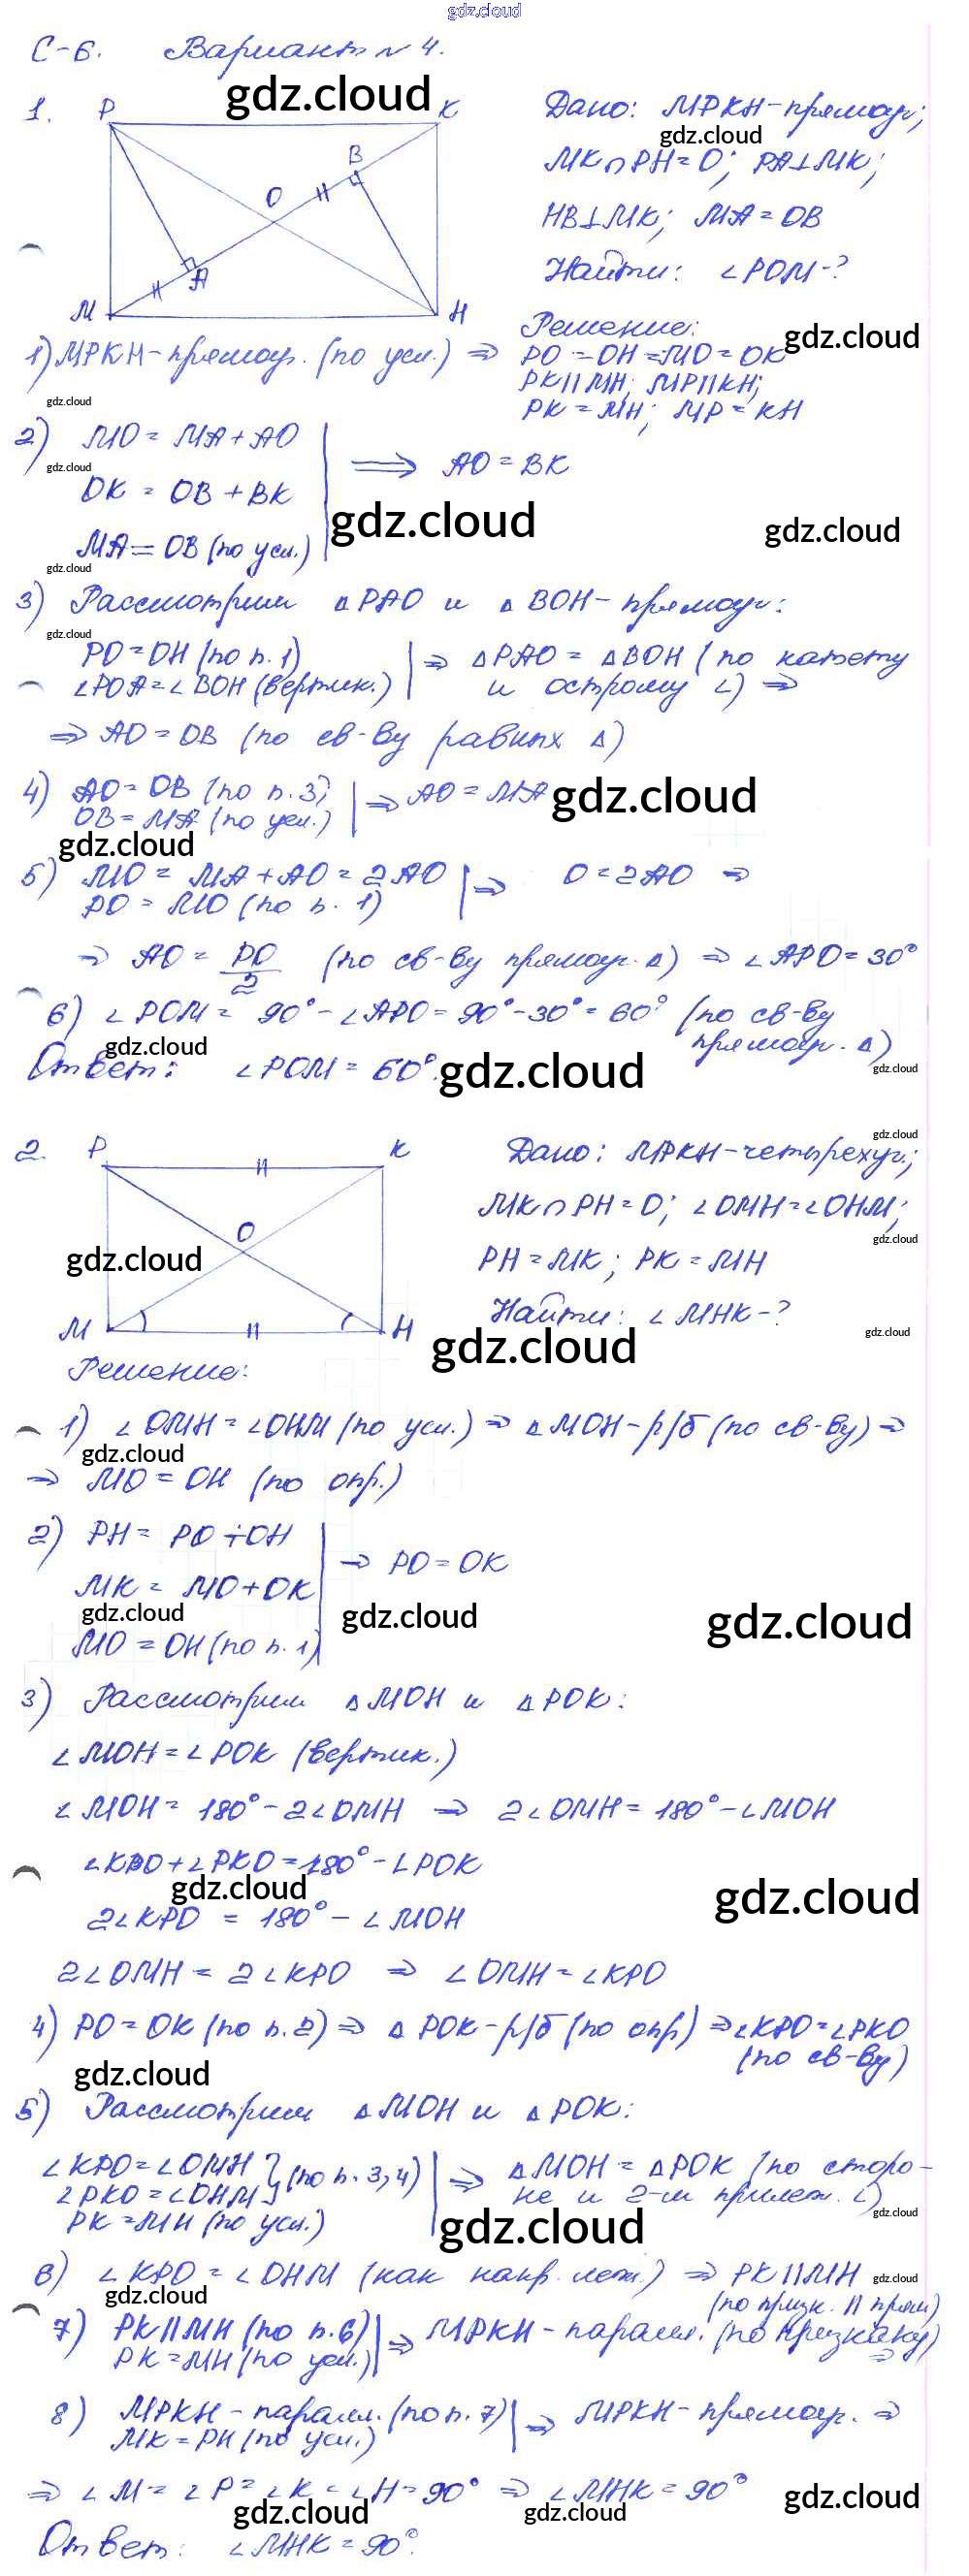 gdz.cloud
С-6. Вариант № 4.
1. P K
gdz.cloud
B
O
A
М Н
Дано: МРКН-прямоуг;
gdz.cloud
МК∩РН=О; РА⊥МК;
НВ⊥МК; МА=ОВ
Найти: ∠РОМ-?
Решение:
gdz.cloud
1) МРКН-прямоуг. (по усл.) ⇒ РО=ОН=МО=ОК
РК||МН; МР||КН;
РК=МН; МР=КН
gdz.cloud
2) МО = МА+АО
gdz.cloud
ОК = ОВ+ВК ⇒ АО=ВК
МА=ОВ (по усл.)
gdz.cloud
gdz.cloud
gdz.cloud
3) Рассмотрим ΔРАО и ΔВОН-прямоуг:
gdz.cloud
РО=ОН (по п.1)
∠РОА=∠ВОН (вертик.) ⇒ ΔРАО = ΔВОН (по катету
и острому ∠) ⇒
⇒ АО=ОВ (по св-ву равных Δ)
4) АО=ОВ (по п.3)
ОВ=МА (по усл.) ⇒ АО=МА
gdz.cloud
gdz.cloud
5) МО = МА+АО=2АО
РО=МО (по п. 1) ⇒ О=2АО ⇒
⇒ АО = РО/2 (по св-ву прямоуг. Δ) ⇒ ∠АРО=30°
6) ∠РОМ = 90°-∠АРО=90°-30°=60° (по св-ву
прямоуг. Δ)
gdz.cloud
Ответ: ∠РОМ=60°.
gdz.cloud
gdz.cloud
2. P К
О
М Н
gdz.cloud
gdz.cloud
Дано: МРКН-четырехуг.;
МК∩РН=О; ∠ОМН=∠ОНМ;
gdz.cloud
РН=МК; РК=МН
Найти: ∠МНК-?
gdz.cloud
gdz.cloud
Решение:
1) ∠ОМН=∠ОНМ (по усл.) ⇒ ΔМОН-р/б (по св-ву) ⇒
gdz.cloud
⇒ МО=ОН (по опр.)
2) РН = РО+ОН
МК = МО+ОК ⇒ РО=ОК
gdz.cloud
gdz.cloud
gdz.cloud
МО=ОН (по п. 1)
3) Рассмотрим ΔМОН и ΔРОК:
∠МОН=∠РОК (вертик.)
∠МОН = 180°-2∠ОМН ⇒ 2∠ОМН=180°-∠МОН
∠КРО+∠РКО=180°-∠РОК
gdz.cloud
gdz.cloud
2∠КРО = 180°-∠МОН
2∠ОМН = 2∠КРО ⇒ ∠ОМН=∠КРО
4) РО=ОК (по п.2) ⇒ ΔРОК-р/б (по опр) ⇒ ∠КРО=∠РКО
(по св-ву)
gdz.cloud
5) Рассмотрим ΔМОН и ΔРОК:
∠КРО=∠ОМН
∠РКО=∠ОНМ } (по п. 3,4)
РК=МН (по усл.) ⇒ ΔМОН = ΔРОК (по сторо-
не и 2-м прилеж. ∠)
gdz.cloud
gdz.cloud
6) ∠КРО = ∠ОНМ (как накр. леж.) ⇒ РК||МН
gdz.cloud
gdz.cloud
(по призн. || прям)
7) РК||МН (по п.6)
РК=МН (по усл.) ⇒ МРКН-паралл. (по признаку) ⇒
8) МРКН-паралл. (по п. 7)
МК=РН (по усл.) ⇒ МРКН-прямоуг. ⇒
⇒ ∠М=∠Р=∠К=∠Н=90° ⇒ ∠МНК=90°
gdz.cloud
gdz.cloud
gdz.cloud
Ответ: ∠МНК=90°.